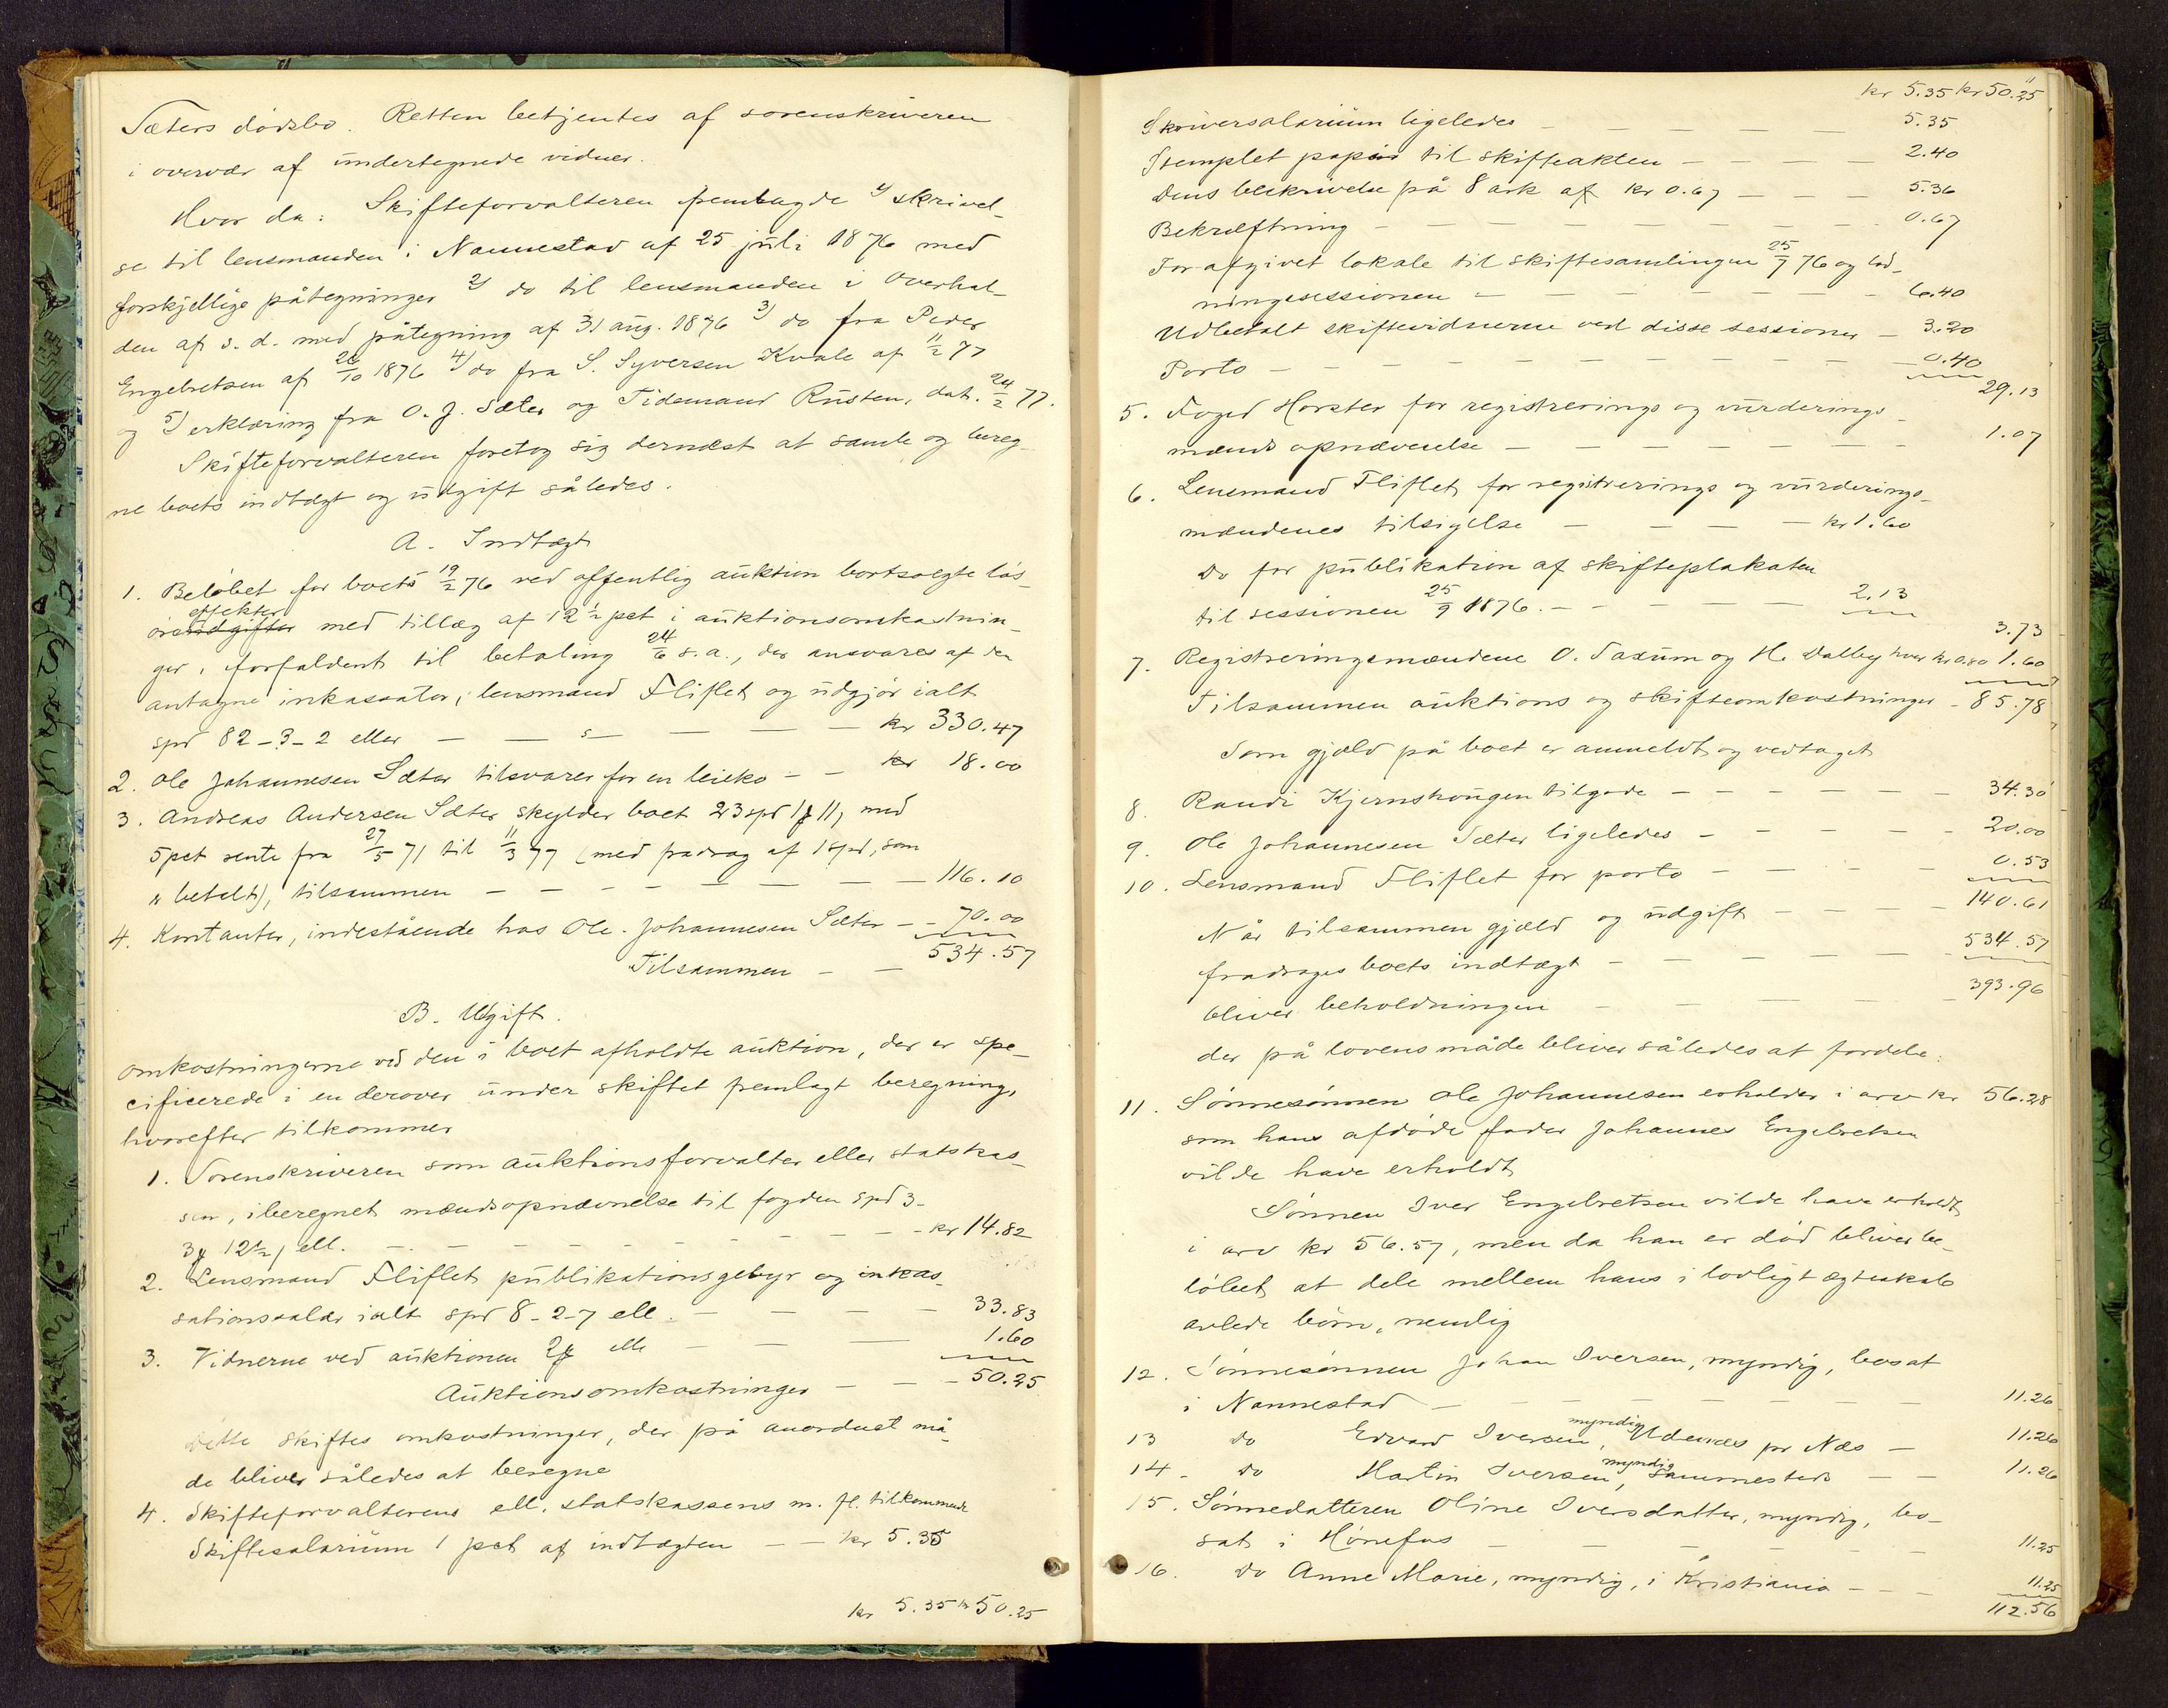 Sæters dødsbo. Retten betjentes af sorenskriveren
i overvær af undertegnede vidner.
Hvor da: Skifteforvalteren fremlagde 1) skrivel-
se til lensmanden i Nannestad af 25 juli 1876 med
forskjellige påtegninger 2) do til lensmanden i Overhal-
den af s. d. med påtegning af 31 aug. 1876 3) do fra Peder
Engebretsen af 26/10 1876 4) do fra S. Syversen Kvale af 11/2 77
og 5) erklæring fra O. J. Sæter og Tidemand Rusten, dat. 24/2 77.
Skifteforvalteren foretog sig dernæst at samle og bereg-
ne boets indtægt og udgift således.
A. Indtægt
1. Beløbet for boets 19/2 76 ved offentlig auktion bortsolgte løs-
effekter
øreudgifter med tillæg af 12 1/2 pct i auktionsomkostnin-
ger, forfaldent til betaling 24/6 s.a., der ansvares af den
antagne inkassator, lensmand Fliflet og udgjør ialt
spd 82-3-2 eller — — — — — kr 330.47
2. Ole Johannesen Sæter tilsvarer for en leieko — — kr 18.00
3. Andreas Andersen Sæter skylder boet 23 spd 1 # 11, med
5 pct rente fra 27/5 71 til 11/3 77 (med fradrag af 1 spd, som
" betalt), tilsammen — — — — — — — 116.10
4. Kontanter, indestående hos Ole Johannesen Sæter — — 70.00
Tilsammen — — 534.57
B. Udgift.
Omkostningerne ved den i boet afholdte auktion, der er spe-
cificerede i en derover under skiftet fremlagt beregning,
hvorefter tilkommer
1. Sorenskriveren som auktionsforvalter eller statskas-
sen, iberegnet mændsopnævnelse til fogden spd 3-
3 # 12 1/2, ell. — — — — — — — — kr 14.82
2. Lensmand Fliflet publikationsgebyr og inkas-
sationssalær ialt spd 8-2-7 ell. — — — — 33.83
3. Vidnerne ved auktionen 2 # elle — — — 1.60
Auktionsomkostninger — — — 50.25
Dette skiftes omkostninger, der på anordnet må-
de bliver således at beregne
4. Skifteforvalterens ell. statskassens m. fl. tilkommende
Skiftesalarium 1 pct af indtægten — — kr 5.35
kr 5.35 kr 50.25
kr 5.35 kr 50.25
Skriversalarium ligeledes — — — — — 5.35
Stemplet papir til skifteakten — — — — 2.40
Dens beskrivelse på 8 ark af kr 0.67 — — — 5.36
Bekræftning — — — — — — — — 0.67
For afgivet lokale til skiftesamlingen 25/9 76 og lod-
ningssessionen — — — — — — — 6.40
Udbetalt skiftevidnerne ved disse sessioner — 3.20
Porto — — — — — — — — — 0.40
29.13
5. Foged Horster for registrerings og vurderings-
mænds opnævnelse — — — — — — — 1.07
6. Lensmand Fliflet for registrerings og vurderings-
mændenes tilsigelse — — — — kr 1.60
Do for publikation af skifteplakaten
til sessionen 25/9 1876. — — — — — 2.13
3.73
7. Registreringsmændene O. Taxum og H. Dalby hver kr 0.80 1.60
Tilsammen auktions og skifteomkostninger — 85.78
Som gjæld på boet er anmeldt og vedtaget
8. Randi Kjernshaugen tilgode — — — — — — 34.30
9. Ole Johannesen Sæter ligeledes — — — — — 20.00
10. Lensmand Fliflet for porto — — — — — 0.53
Når tilsammen gjæld og udgift — — — — 140.61
fradrages boets indtægt — — — — — — 534.57
bliver beholdningen — — — — 393.96
der på lovens måde bliver således at fordele:
11. Sønnesønnen Ole Johannesen erholder i arv kr 56.28
som hans afdøde fader Johannes Engebretsen
vilde have erholdt
Sønnen Iver Engebretsen vilde have erholdt
i arv kr 56.57, men da han er død bliver be-
løbet at dele mellem hans i lovligt ægteskab
avlede børn, nemlig
12. Sønnesønnen Johan Iversen, myndig, bosat
i Nannestad — — — — — — — — 11.26
myndig
13 do Edvard Iversen, Udenæs pr Næs — 11.26
myndig
14 - do Martin Iversen, sammesteds — — 11.26
15. Sønnedatteren Oline Iversdatter, myndig, bo-
sat i Hønefos — — — — — — 11.25
16. Do Anne Marie, myndig, i Kristiania — — — 11.25
112.56